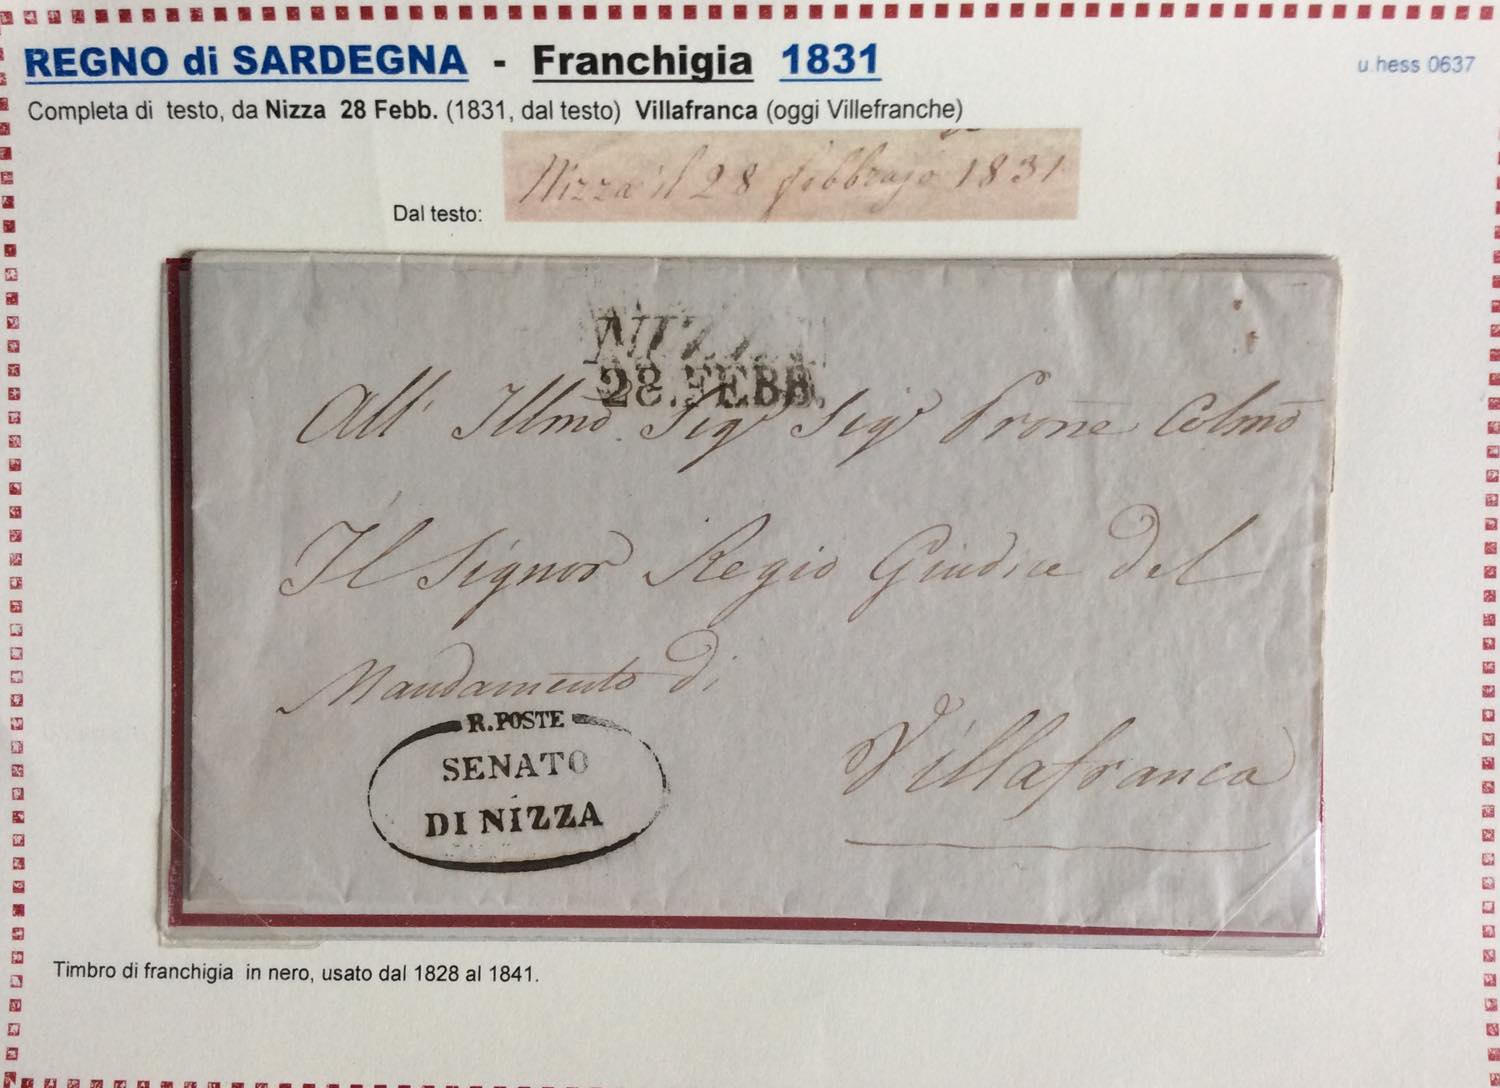 REGNO di SARDEGNA - Franchigia 1831
u hess 0637
Completa di testo, da Nizza 28 Febb. (1831, dal testo) Villafranca (oggi Villefranche)
Dal testo:
Nizza il 28 febbrajo 1831
NIZZA
28.FEBB.
All' Illmo Sigr Sigr Prone Colmo
Il Signor Regio Giudice del
Mandamento di
Villafranca
R.POSTE
SENATO
DI NIZZA
Timbro di franchigia in nero, usato dal 1828 al 1841.